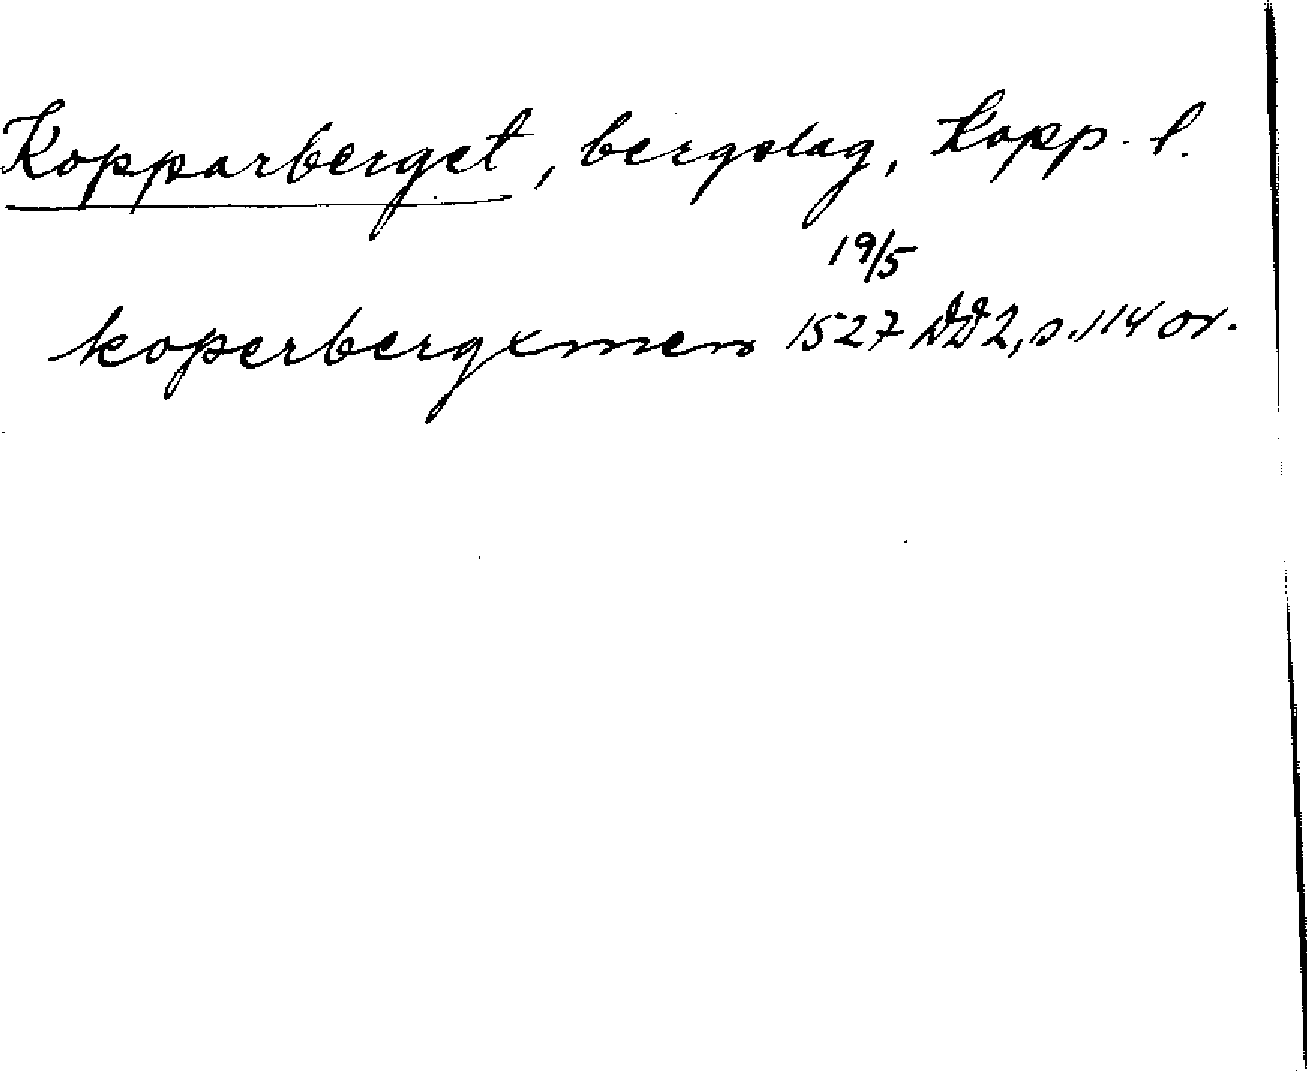 Kopparberget, bergslag, Kopp. l.
koperbergxmen 19/5 1527 DD2, s. 114 or.